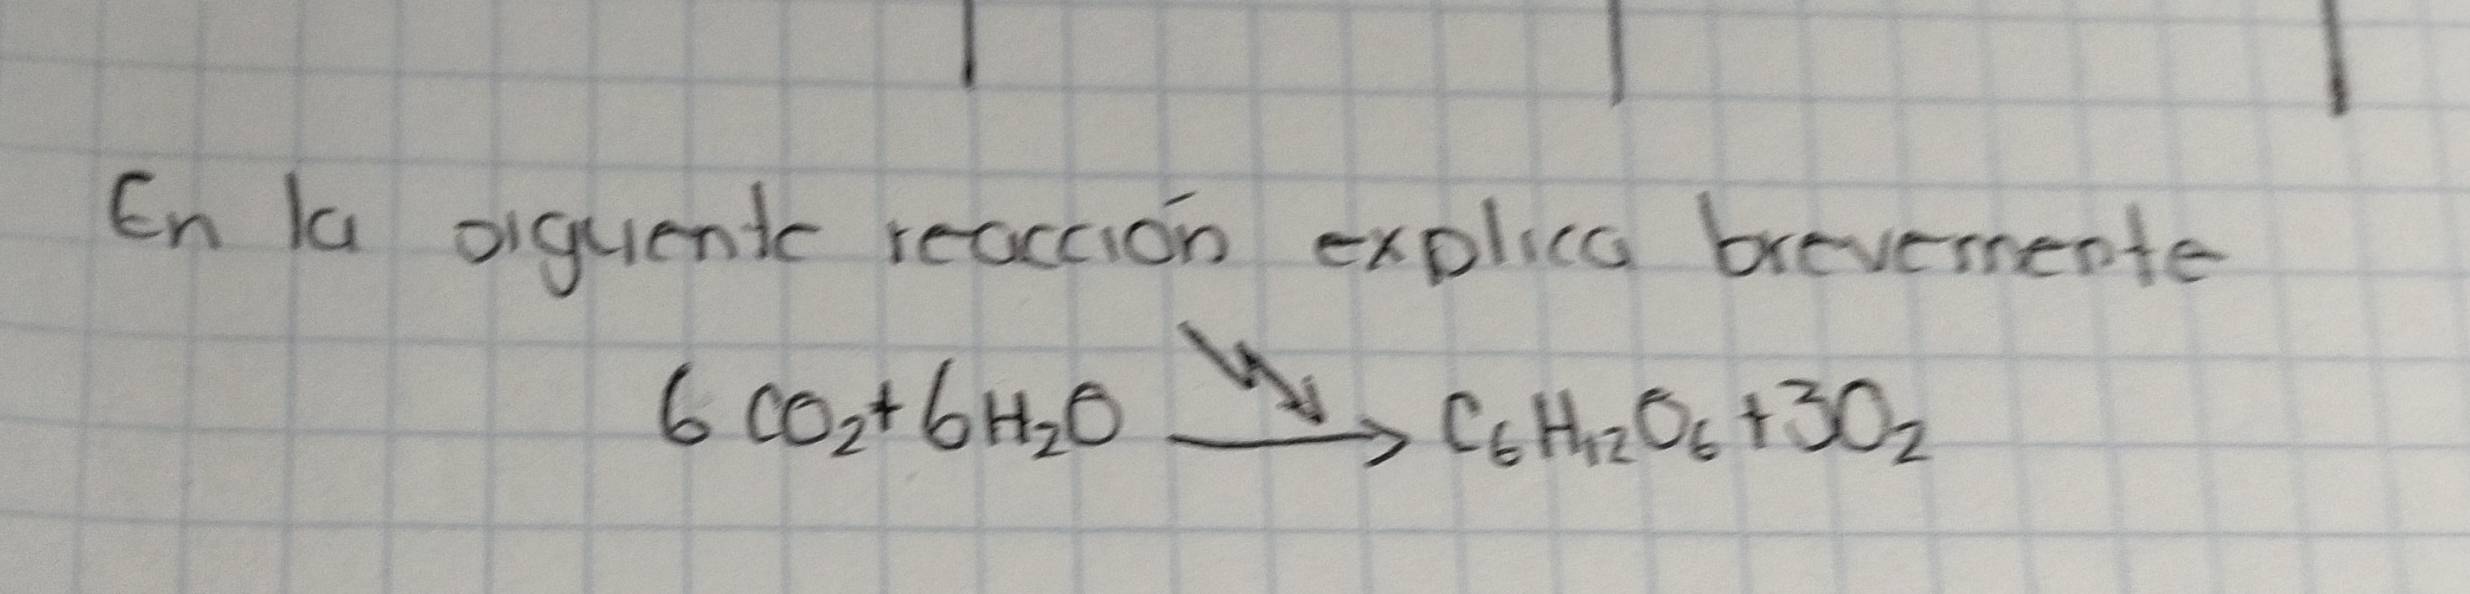 En la siguiente reacción explica brevemente
6 CO₂ + 6H₂O → C₆H₁₂O₆ + 3O₂